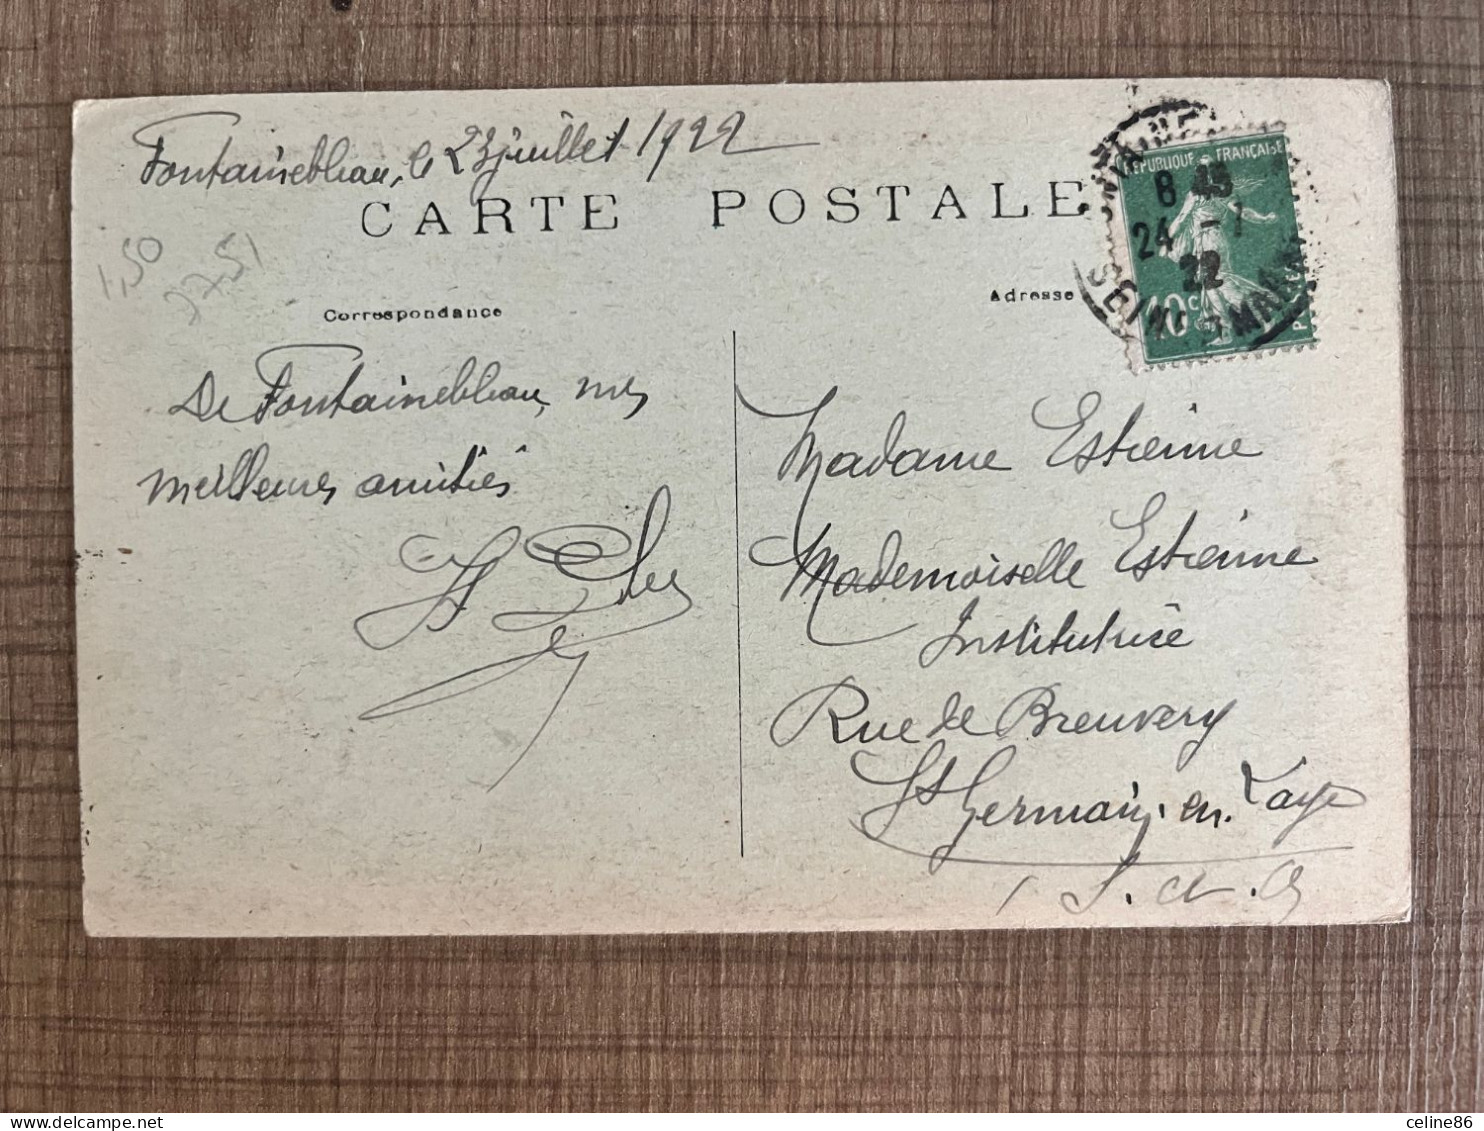 Fontainebleau, le 23 juillet 1922
CARTE POSTALE
1,50
Correspondance
Adresse
RÉPUBLIQUE FRANÇAISE
8 45
24 - 7
22
10c
SEINE & MARNE
De Fontainebleau, mes
meilleures amitiés
Madame Estienne
Mademoiselle Estienne
Institutrice
Rue de Breuvery
St Germain-en-Laye
S.-et-O.
celine86